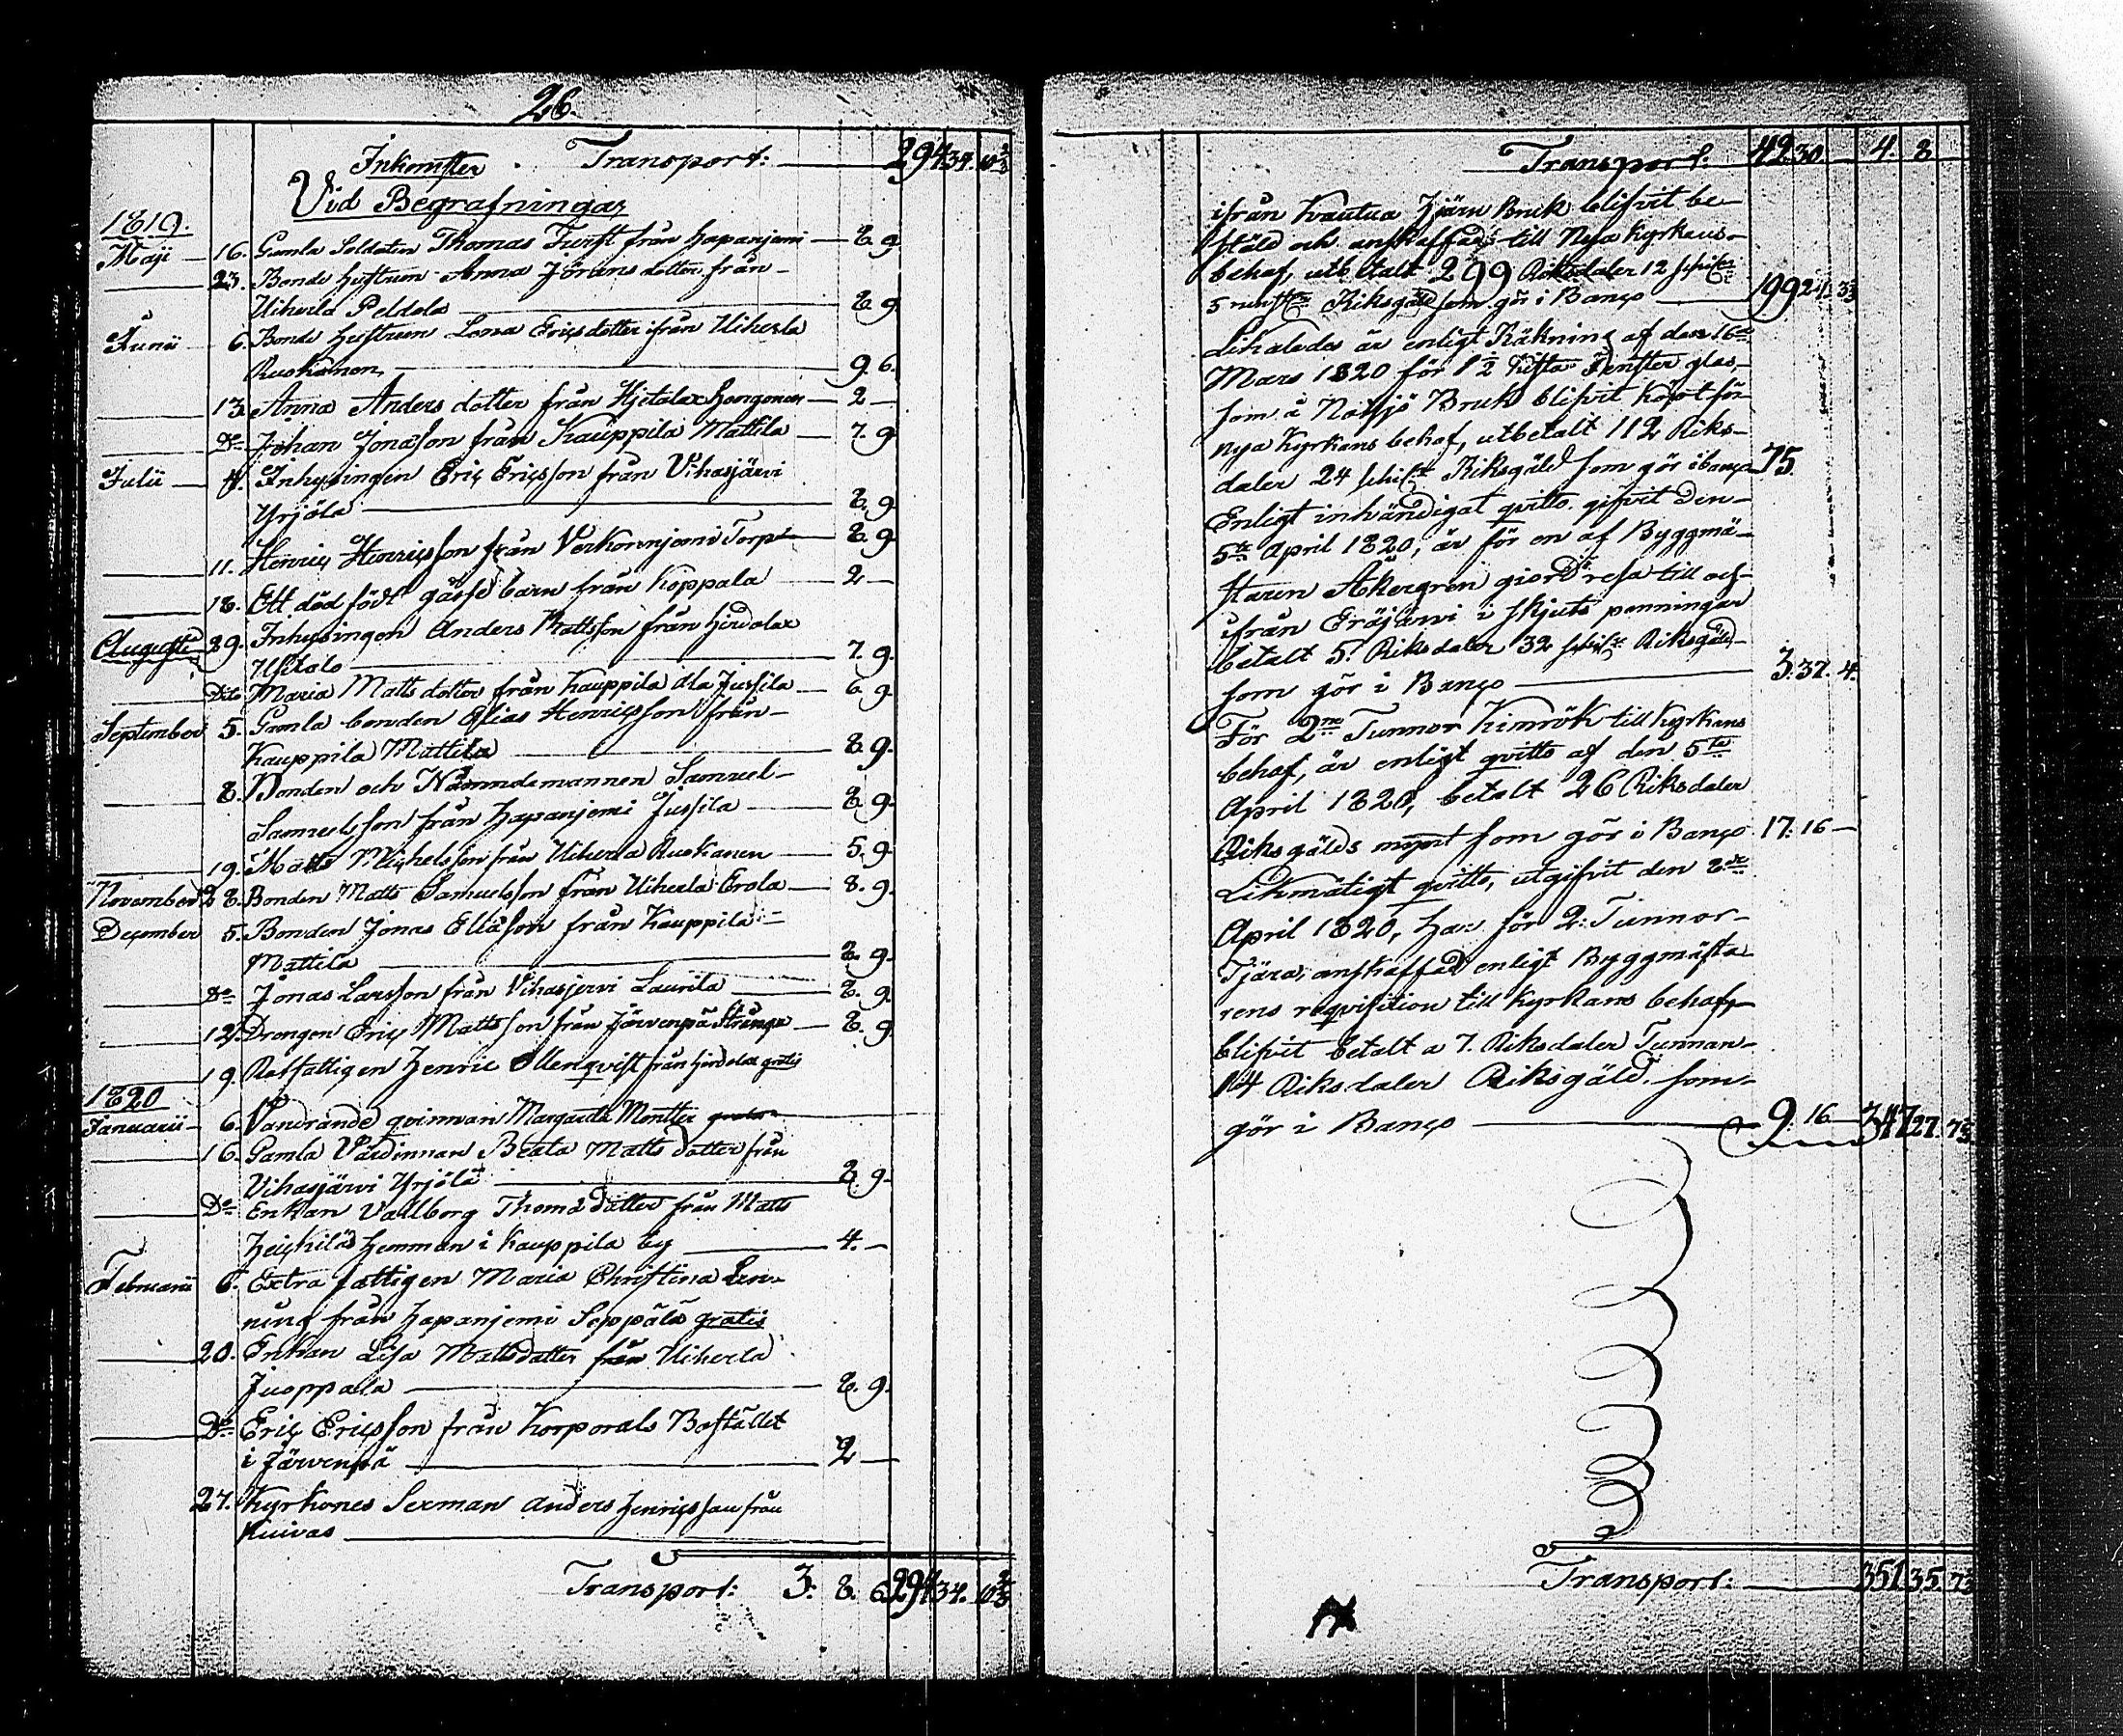 26.
Inkomster. Transport: — 294 34. 10 2/3
Vid Begrafningar
1819.
Maji — 16. Gamla Soldaten Thomas Turst från Hapanjemi — 8. 9
— 23. Bonde hustrun Anna Jöransdotter från
Uiherla Peldola — 8. 9.
Junii — 6. Bonde hustrun Lena Ericsdotter ifrån Uiherla
Ruokonen — 9. 6.
— 13. Anna Anders dotter från Hjetalax — 2 —
Do Johan Jonasson från Kauppila Mattila — 7. 9.
Julii — 4. Inhysingen Eric Ericsson från Vihasjärvi
Yrjöla — 8. 9.
— 11. Henric Henricsson från Torp — 8. 9
— 18. Ett död födt gåsse barn från Koppala — 2 —
Augusti 29. Inhysingen Anders Mattsson från Hirdolax
Usitalo — 7. 9.
— Dito Maria Matts dotter från Kauppila Ala Jussila — 6. 9.
September 5. Gamla bonden Elias Henricsson från
Kauppila Mattila — 8. 9.
— 8. Bonden och Nämndemannen Samuel
Samuelsson från Hapanjemi Jussila — 8. 9.
— 19. Matts Michelsson från Uiherla Ruokanen — 5. 9.
November 28. Bonden Matts Samuelsson från Uiherla Erola — 8. 9.
December 5. Bonden Jonas Eliasson från Kauppila
Mattila — 8. 9.
— Do Jonas Larsson från Vihasjervi Laurila — 8. 9.
— 12. Drengen Eric Mattsson från Järvenpä Strånga — 8. 9.
— 19. Rotfattigen Henric Ollenqvist från Hirdolax gratis
1820
Januarii — 6. Vandrande qvinnan Margareta Montter gratis
— 16. Gamla Värdinnan Beata Matts dotter från
Vihasjärvi Yrjölä — 8. 9.
— Do Enkan Vallborg Thomadotter från Matts
Heickiläs Hemman i Kauppila by — 4. —
Februarii 6. Extra fattigen Maria Christina Len-
ning från Hapanjemi Seppälä gratis
— 20. Enkan Lisa Mattsdotter från Uiherla
Juoppala — 8. 9.
— Do Eric Ericsson från Korporals Bostället
i Järvenpä — 2 —
27. Kyrkones Sexman Anders Henricsson från
Kuivas —
Transport: 3. 8. 6 294 34. 10 2/3
Transport. 42 30 4. 8
ifrån Kautua Jjärn Bruk blifvit be-
stäld och anskaffad till Nya Kyrkans
behof, utbetalt 299 Riksdaler 12 schill:r
5 runst:n Riksgäld som gör i Banço — 199 24. 3 1/3
Likaledes är enligt Räkning af den 16de
Mars 1820 för 1½ Kista Fenster glas,
som å Notsjö Bruk blifvit köpt för
nya Kyrkans behof, utbetalt 112 Riks-
daler 24 schill:r Riksgäld som gör i banço 75.
Enligt inhändigat qvitto, gifvit den
5te April 1820, är för en af Byggmä-
staren Åkergren giord resa till och
ifrån Eräjärvi i skjuts penningar
betalt 5. Riksdaler 32 schill:r Riksgäld
som gör i Banço — 3. 37. 4.
För 2ne Tunnor Kimrök till Kyrkans
behof, är enligt qvitto af den 5te
April 1820, betalt 26 Riksdaler
Riksgälds mynt som gör i Banço 17: 16 —
Likmätigt qvitto, utgifvit den 8de
April 1820, har för 2: Tunnor
Tjära, anskaffad enligt Byggmästa
rens reqvisition till Kyrkans behof,
blifvit betalt a 7. Riksdaler Tunnan
14 Riksdaler Riksgäld. som
gör i Banço — 9. 16 — 347 27. 7 1/3
Transport: — 351 35. 7 1/3